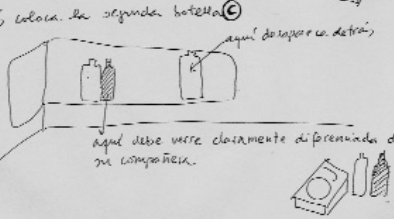 coloca la segunda botella Ⓒ
aquí desaparece detrás
aquí debe verse claramente diferenciada d
su compañera.